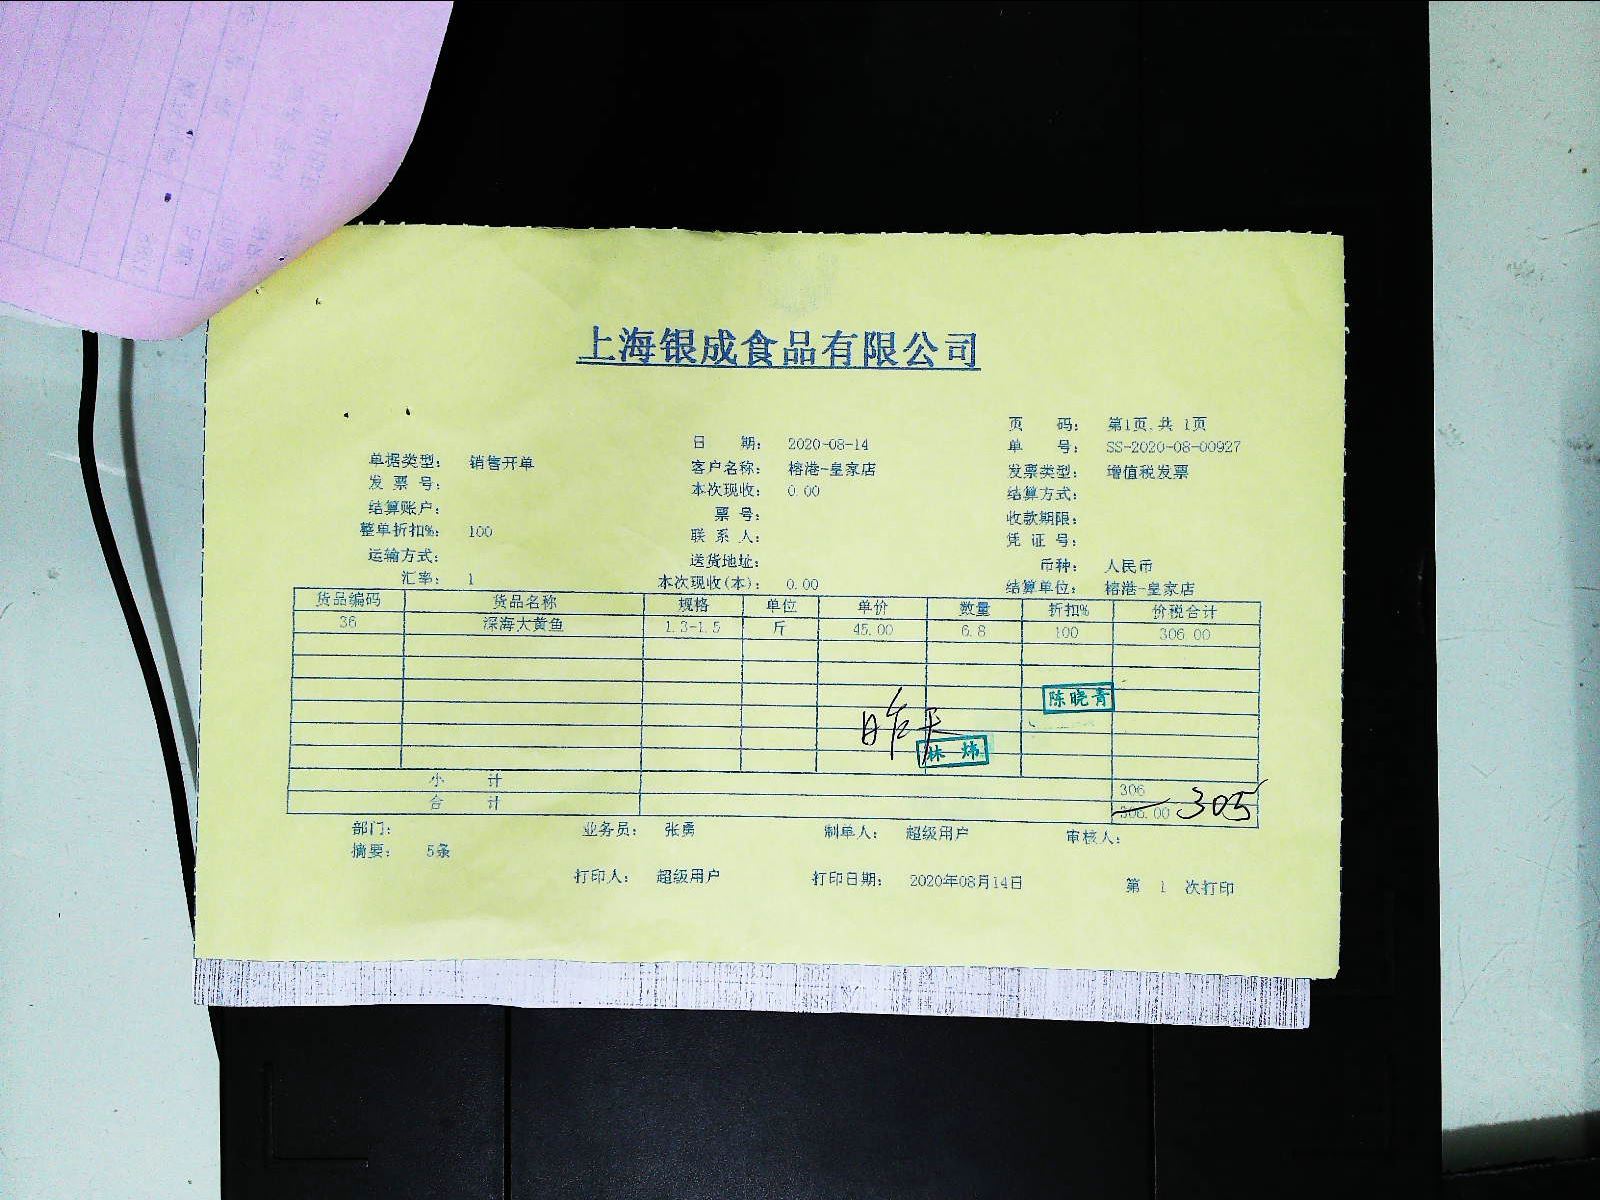 上海银成食品有限公司
页 码： 第1页,共 1页
日 期： 2020-08-14 单 号： SS-2020-08-00927
单据类型： 销售开单 客户名称： 榕港-皇家店 发票类型： 增值税发票
发 票 号： 本次现收： 0.00 结算方式：
结算账户： 票 号： 收款期限：
整单折扣%： 100 联 系 人： 凭 证 号：
运输方式： 送货地址： 币种： 人民币
汇率： 1 本次现收(本)： 0.00 结算单位： 榕港-皇家店
货品编码 货品名称 规格 单位 单价 数量 折扣% 价税合计
36 深海大黄鱼 1.3-1.5 斤 45.00 6.8 100 306.00
陈晓青
昨天
林炜
小 计 306
合 计 306.00 305
部门： 业务员： 张勇 制单人： 超级用户 审核人：
摘要： 5条
打印人： 超级用户 打印日期： 2020年08月14日 第 1 次打印